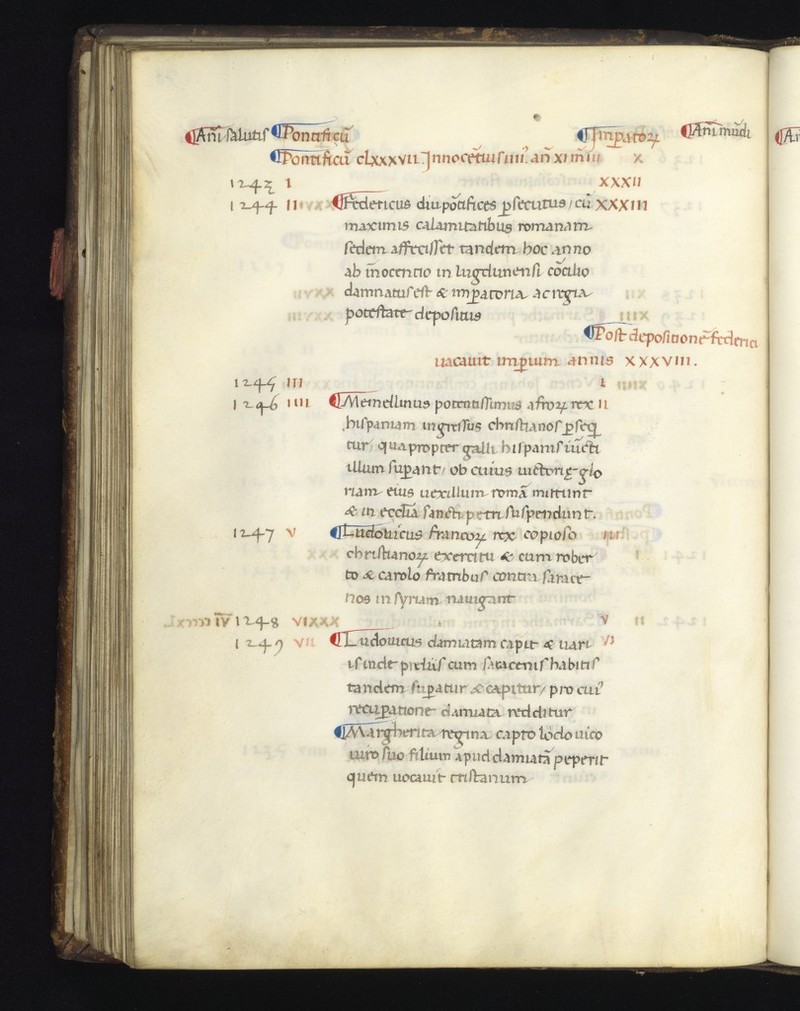 ¶Añi salutis ¶Pontificũ ¶Imꝑatoꝝ ¶Añi mũdi
¶Pontificũ clxxxvii. Innocẽtius iiii. añ xi m̃ iii x
1243 I XXXII
1244 II ¶Federicus diu põtifices ꝑsecutus / cũ XXXIII
maximis calamitatibus romanam
sedem affecisset tandem hoc anno
ab ĩnocentio in lugdunensi cõcilio
damnatus est & imꝑatoria ac regia
potestate depositus
¶Post depositionẽ federici
uacauit imꝑium annis XXXVIII.
1245 III I
1246 IIII ¶Memellinus potentissimus afroꝝ rex II
hispaniam ingressus christianos ꝑseq̃
tur / quapropter galli hispanis iũcti
illum suꝑant / ob cuius uictorię glo
riam eius uexillum romã mittunt
& in ecclĩa sancti petri suspendunt.
1247 V ¶Ludouicus francoꝝ rex copioso III
christianoꝝ exercitu & cum rober
to & carolo fratribus contra sarace
nos in syriam nauigant
1248 VI V
1249 VII ¶Ludouicus damiatam capit & uari VI
is inde prelijs cum saracenis habitis
tandem suꝑatur & capitur / pro cuiꝰ
recuꝑatione damiata redditur
¶Margherita regina capto lodouico
uiro suo filium apud damiatã peperit
quem uocauit tristanum